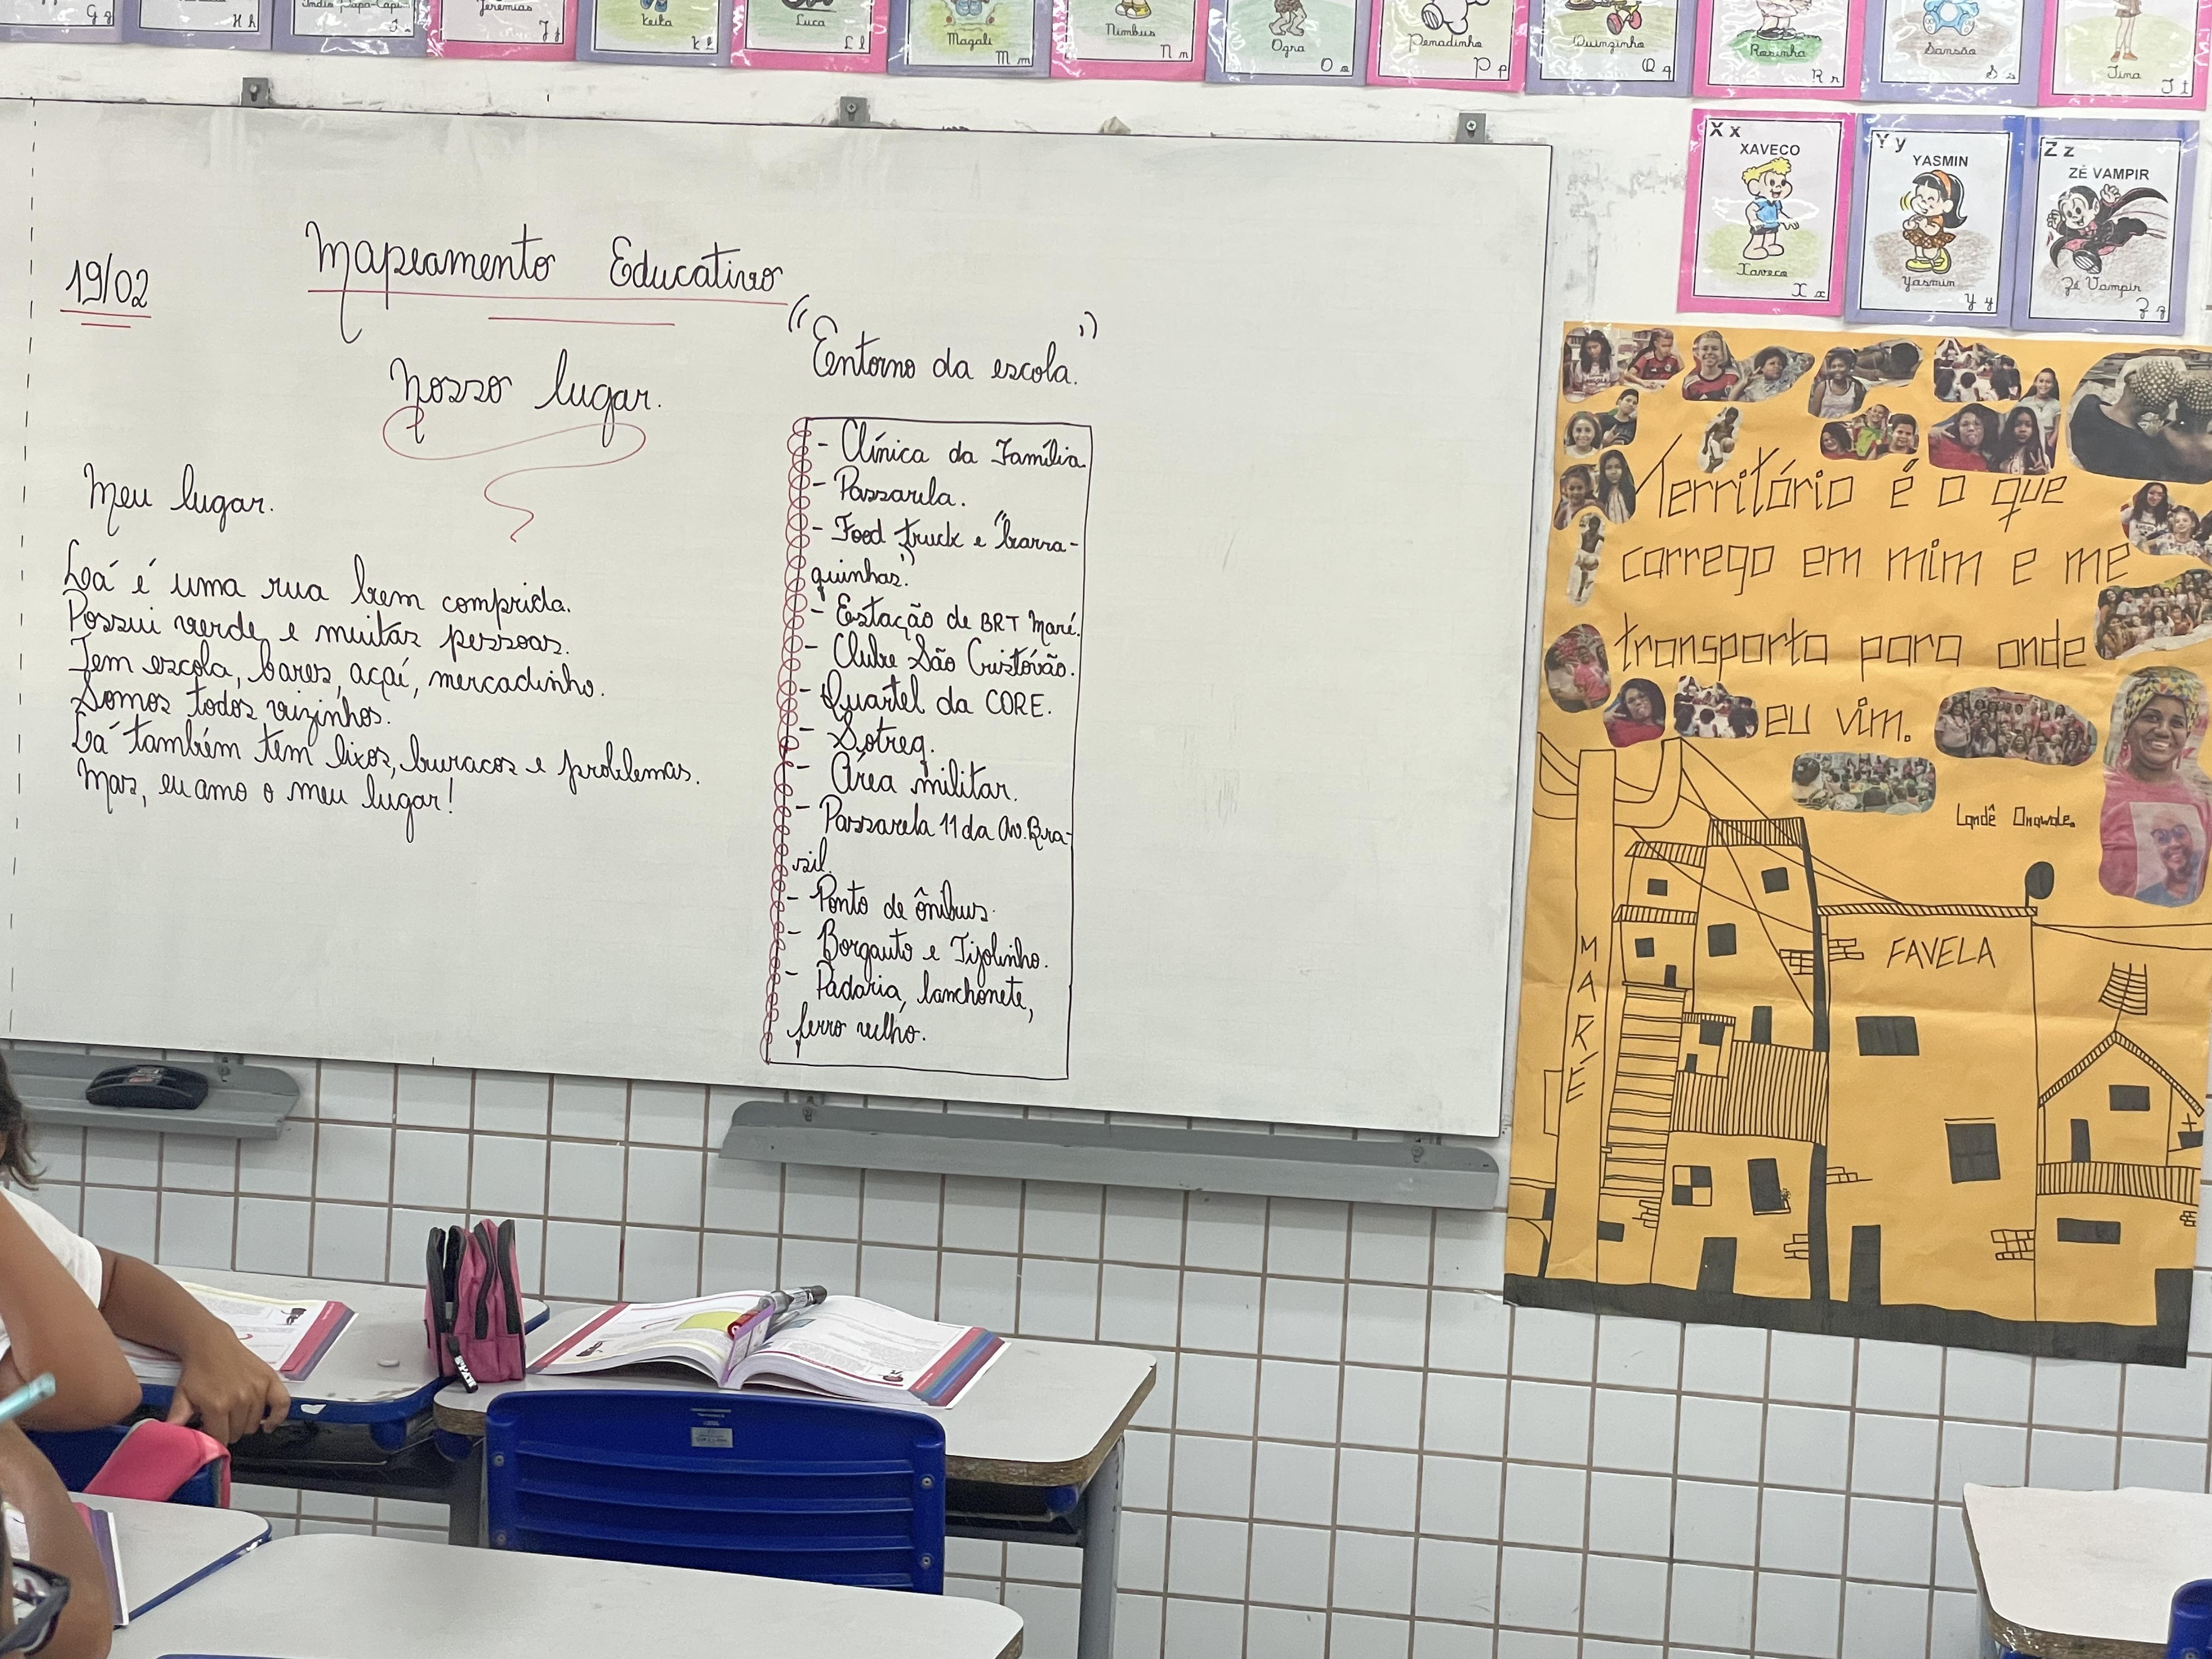 G g
H h
Índio Papa-Capi
Jeremias
J j
Keika
K k
Luca
L l
Magali
M m
Nimbus
N n
Ogra
O o
Penadinho
P p
Quinzinho
Q q
Rosinha
R r
Sansão
S s
Tina
T t
X x
XAVECO
Xaveco
X x
Y y
YASMIN
Yasmin
Y y
Z z
ZÉ VAMPIR
Zé Vampir
Z z
19/02
Mapeamento Educativo
Nosso lugar.
Meu lugar.
Lá é uma rua bem comprida.
Possui verde e muitas pessoas.
Tem escola, bares, açaí, mercadinho.
Somos todos vizinhos.
Lá também tem lixos, buracos e problemas.
Mas, eu amo o meu lugar!
"Entorno da escola."
- Clínica da Família
- Passarela.
- Food truck e "barra-
quinhas".
- Estação de BRT Maré.
- Clube São Cristóvão.
- Quartel da CORE.
- Sotreq.
- Área militar.
- Passarela 11 da Av. Bra-
sil.
- Ponto de ônibus.
- Borgauto e Tijolinho.
- Padaria, lanchonete,
ferro velho.
Território é o que
carrego em mim e me
transporta para onde
eu vim.
Landê Onawale.
MARÉ
FAVELA